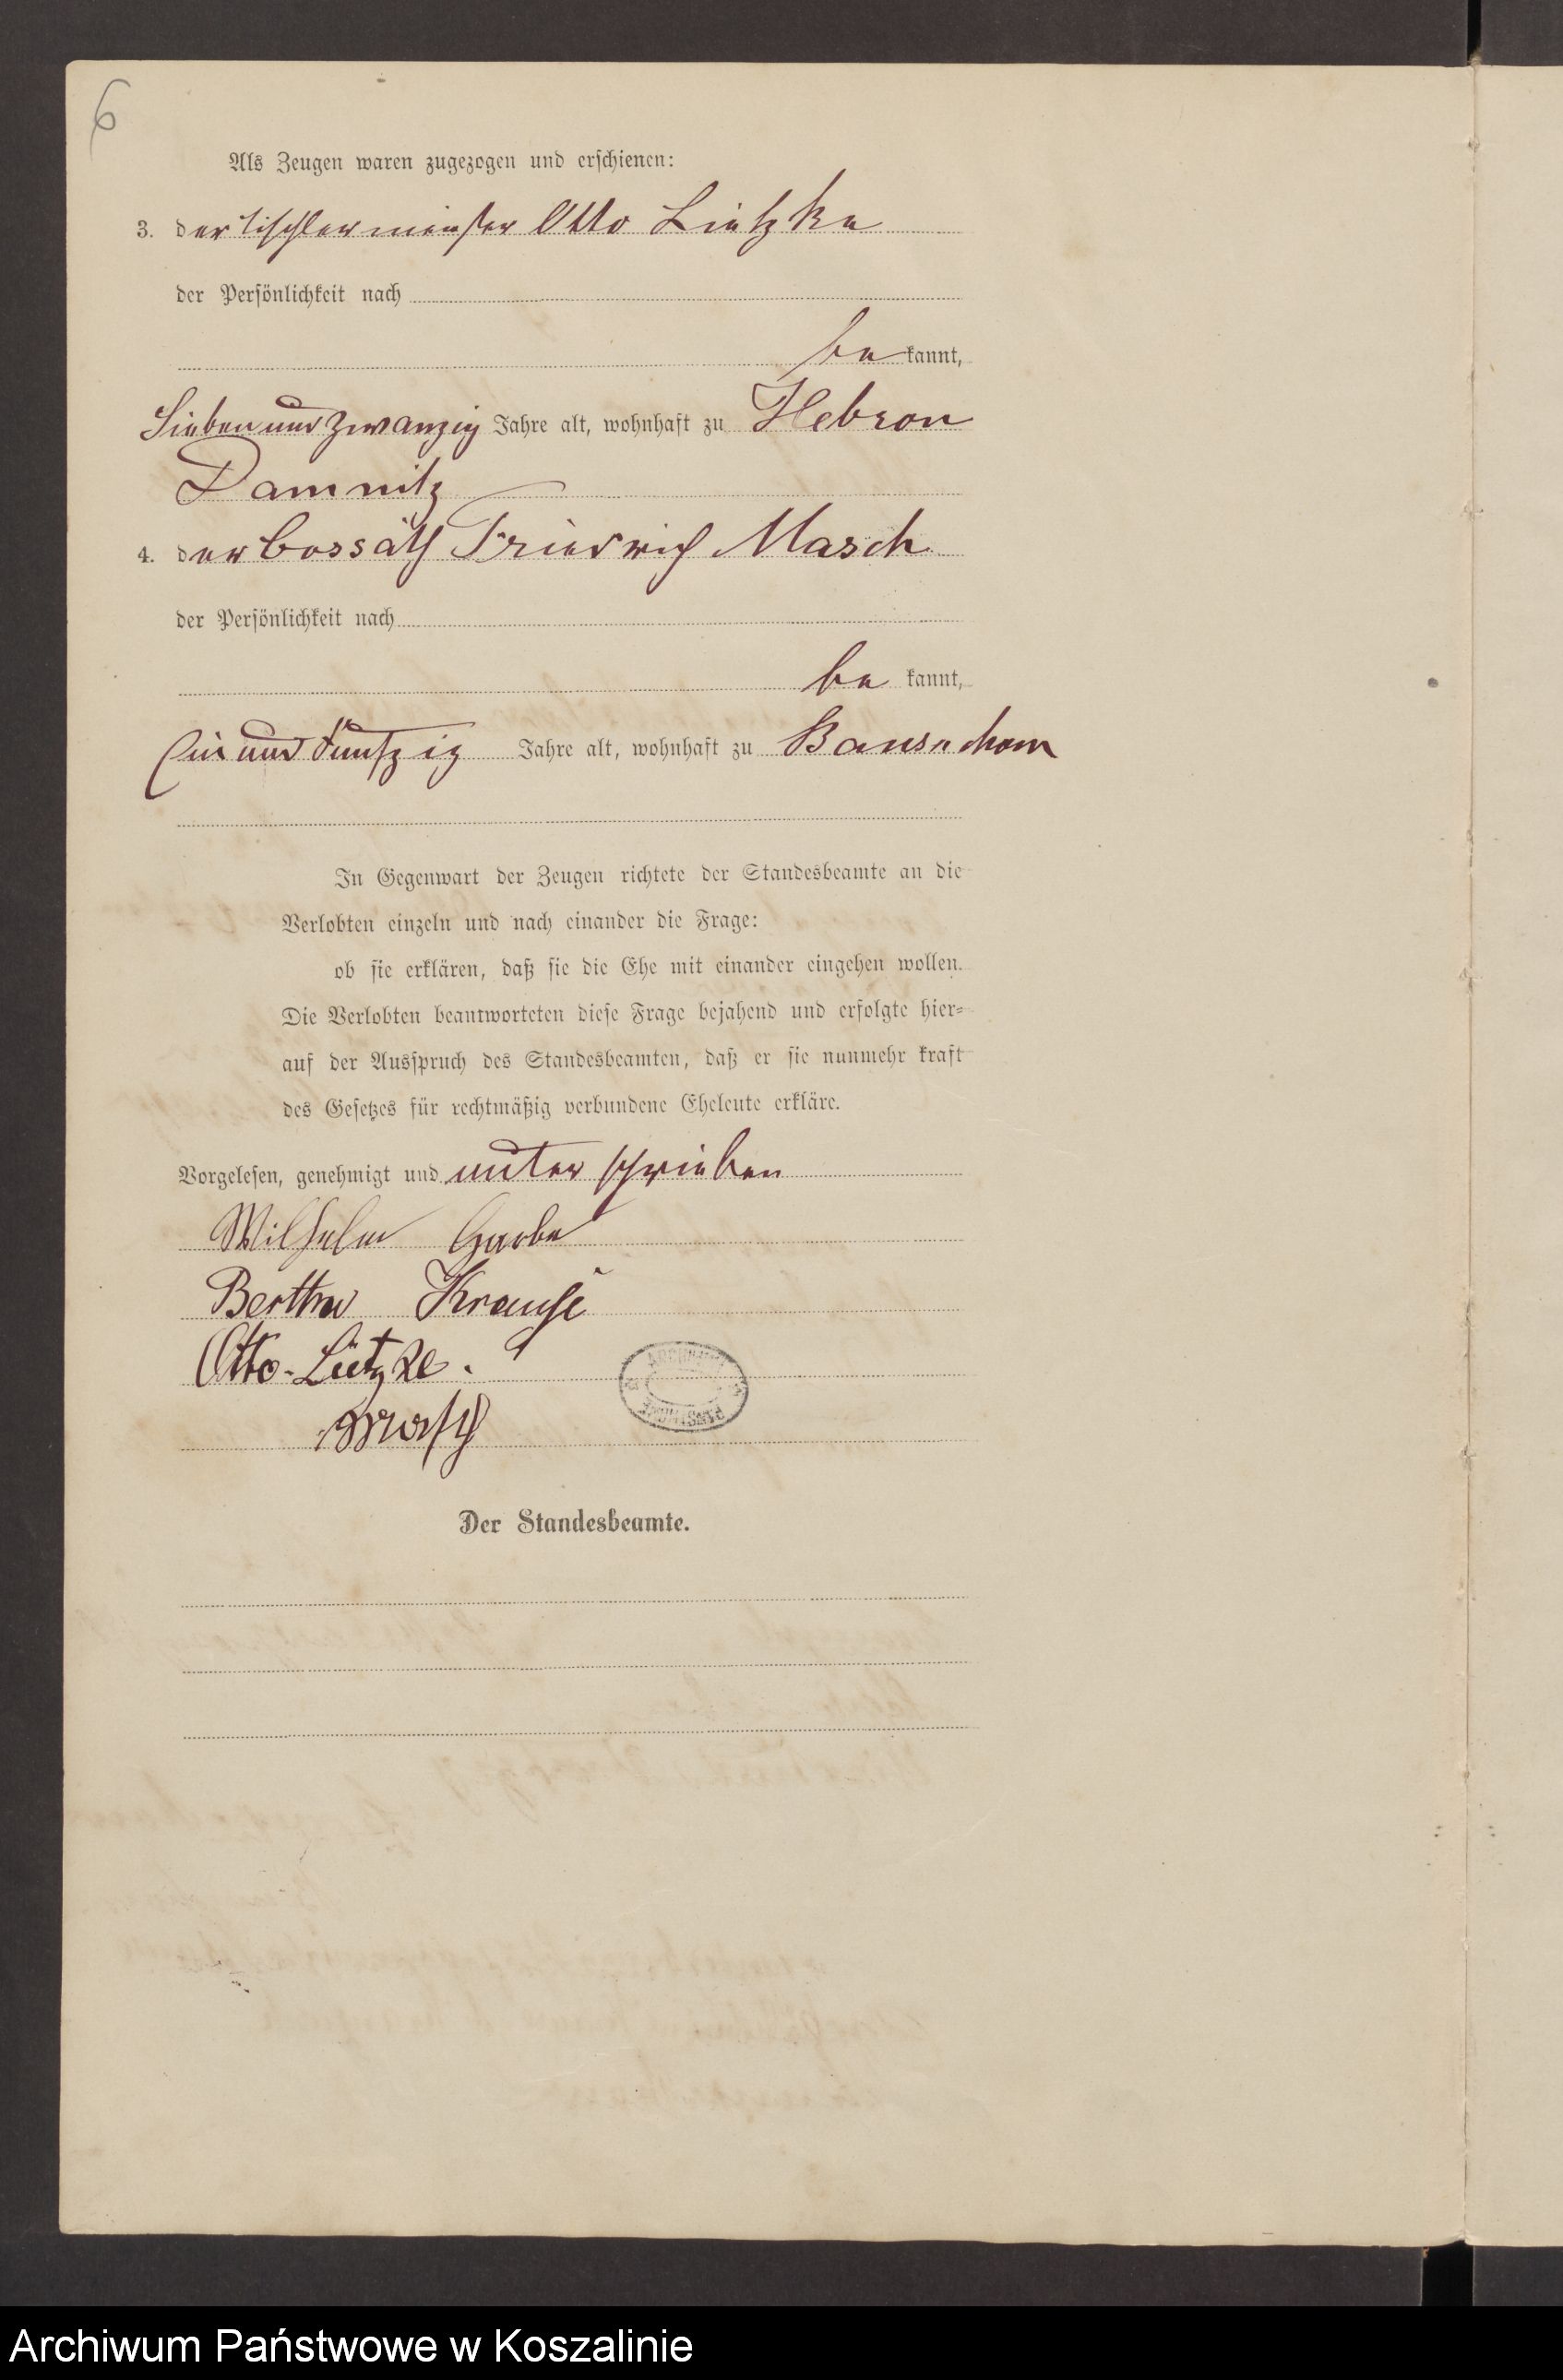 6
Als Zeugen waren zugezogen und erschienen:
3. der Tischlermeister Otto Lietzke
der Persönlichkeit nach
be kannt,
Sieben und zwanzig Jahre alt, wohnhaft zu Hebron
Damnitz
4. der Cossäth Friedrich Masch
der Persönlichkeit nach
be kannt,
Ein und Funfzig Jahre alt, wohnhaft zu
In Gegenwart der Zeugen richtete der Standesbeamte an die
Verlobten einzeln und nach einander die Frage:
ob sie erklären, daß sie die Ehe mit einander eingehen wollen.
Die Verlobten beantworteten diese Frage bejahend und erfolgte hier=
auf der Ausspruch des Standesbeamten, daß er sie nunmehr kraft
des Gesetzes für rechtmäßig verbundene Eheleute erkläre.
Vorgelesen, genehmigt und unterschrieben
Wilhelm Garbe
Bertha Krause
Otto Lietzke.
Masch
Der Standesbeamte.
Archiwum Państwowe w Koszalinie